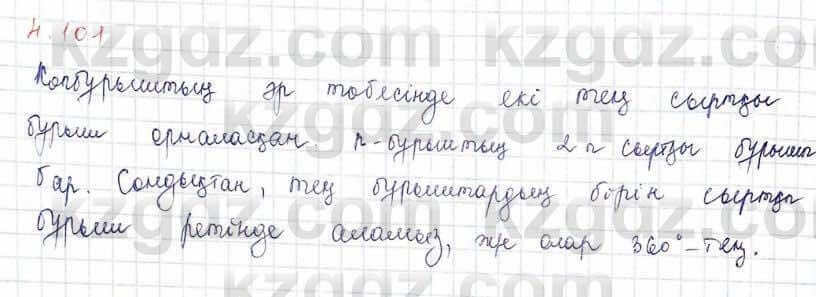 4.101
Көпбұрыштың әр төбесінде екі тең сыртқы
бұрыш орналасқан. n-бұрыштың 2n сыртқы бұрышы
бар. Сондықтан, тең бұрыштардың бірін сыртқы
бұрыш ретінде аламыз, және олар 360°-тең.